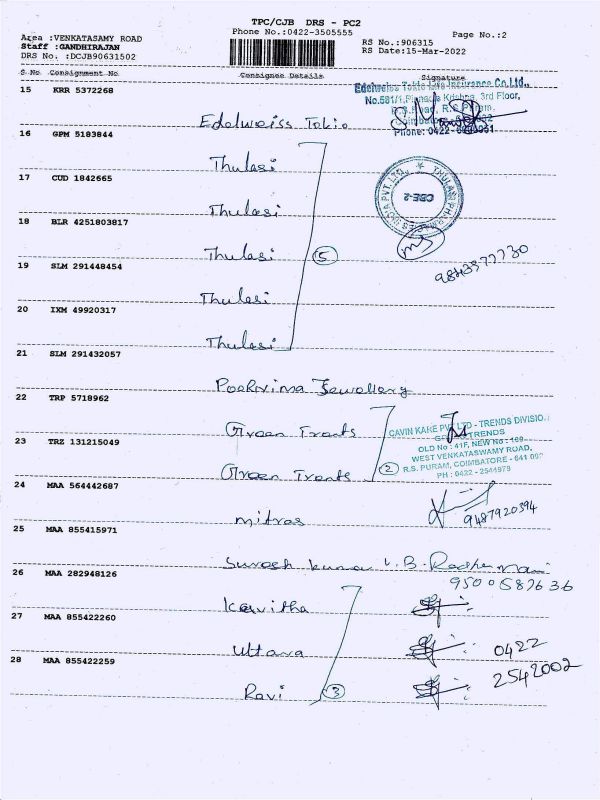 TPC/CJB DRS - PC2
Phone No.:0422-3505555
Page No.:2
Area :VENKATASAMY ROAD
Staff :GANDHIRAJAN
DRS No. :DCJB90631502
RS No.:906315
RS Date:15-Mar-2022
S No Consignment No Consignee Details Signature
15 KRR 5372268
Edelweiss Tokio
Edelweiss Tokio Life Insurance Co.Ltd.,
3rd Floor,
Phone: 0422-
16 GPM 5183844
Thulasi
17 CUD 1842665
Thulasi
CBE-2
18 BLR 4251803817
Thulasi 5
9843377730
19 SLM 291448454
Thulasi
20 IXM 49920317
Thulasi
21 SLM 291432057
Poorvima Jewellery
22 TRP 5718962
Green Trends
CAVIN KARE PVT LTD - TRENDS DIVISIO
TRENDS
OLD No : 41F, NEW No :
WEST VENKATASWAMY ROAD,
R.S. PURAM, COIMBATORE - 641 002
PH : 0422 - 2544979
23 TRZ 131215049
Green Trends 2
24 MAA 564442687
mitras
9487920394
25 MAA 855415971
Suresh kumar
9500587636
26 MAA 282948126
Kavitha
27 MAA 855422260
Uttara
0422
2542002
28 MAA 855422259
Ravi 3